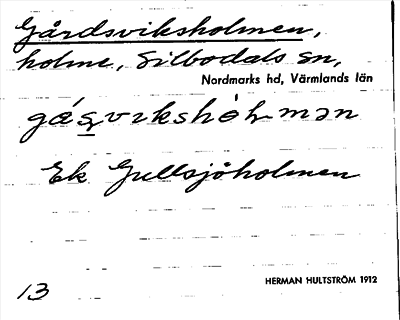 Gårdsviksholmen,
holme, Silbodals sn,
Nordmarks hd, Värmlands län
Ek Gullsjöholmen
HERMAN HULTSTRÖM 1912
13